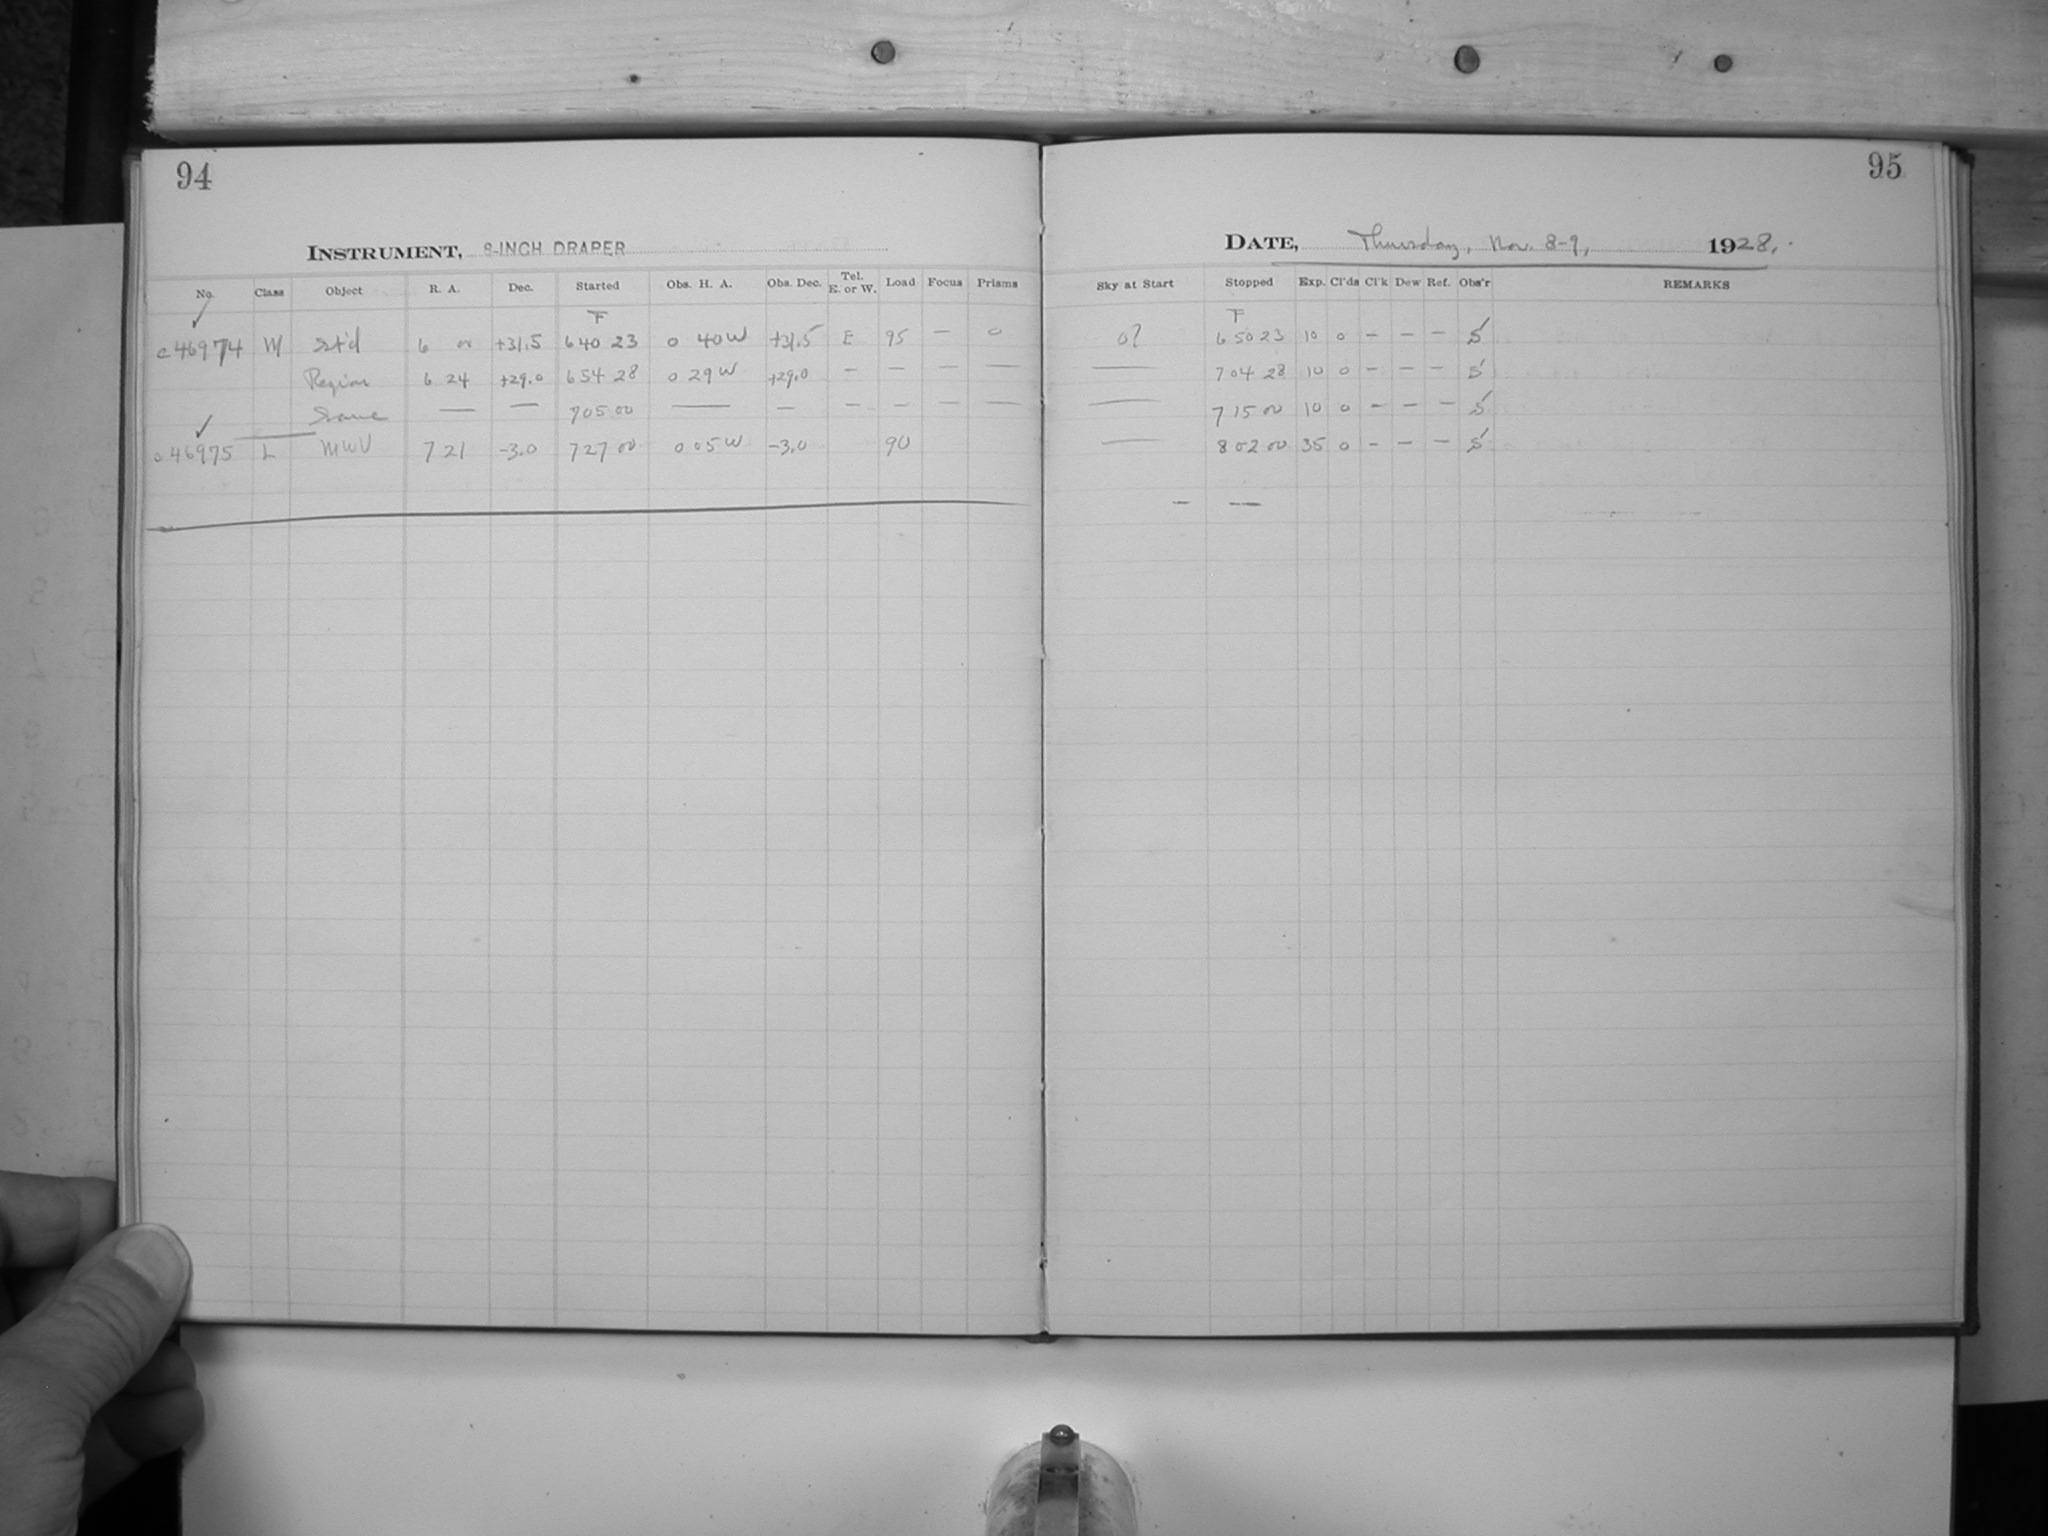 94
INSTRUMENT, 8-INCH DRAPER
No. Class Object R. A. Dec. Started Obs. H. A. Obs. Dec. Tel. E. or W. Load Focus Prisms
F
c46974 M St'd 6 00 +31.5 6 40 23 0 40 W +31.5 E 95 — 0
Region 6 24 +29.0 6 54 28 0 29 W +29.0 — — — —
Same — — 7 05 00 — — — — — —
c46975 L MWV 7 21 -3.0 7 27 00 0 05 W -3.0 90
95
DATE, Thursday, Nov. 8-9, 1928.
Sky at Start Stopped Exp. Cl'ds Cl'k Dew Ref. Obs'r REMARKS
F
0? 6 50 23 10 0 — — — S
— 7 04 28 10 0 — — — S
— 7 15 00 10 0 — — — S
— 8 02 00 35 0 — — — S
— —